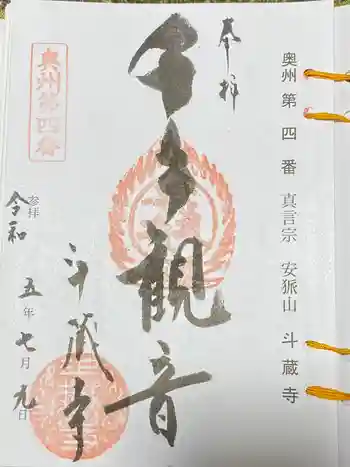 奥州 第 四 番 真言宗 安狐山 斗 蔵 寺
奉拝
千手観音
斗蔵寺
奥州第四番
参拝
令和 五年 七月 九日